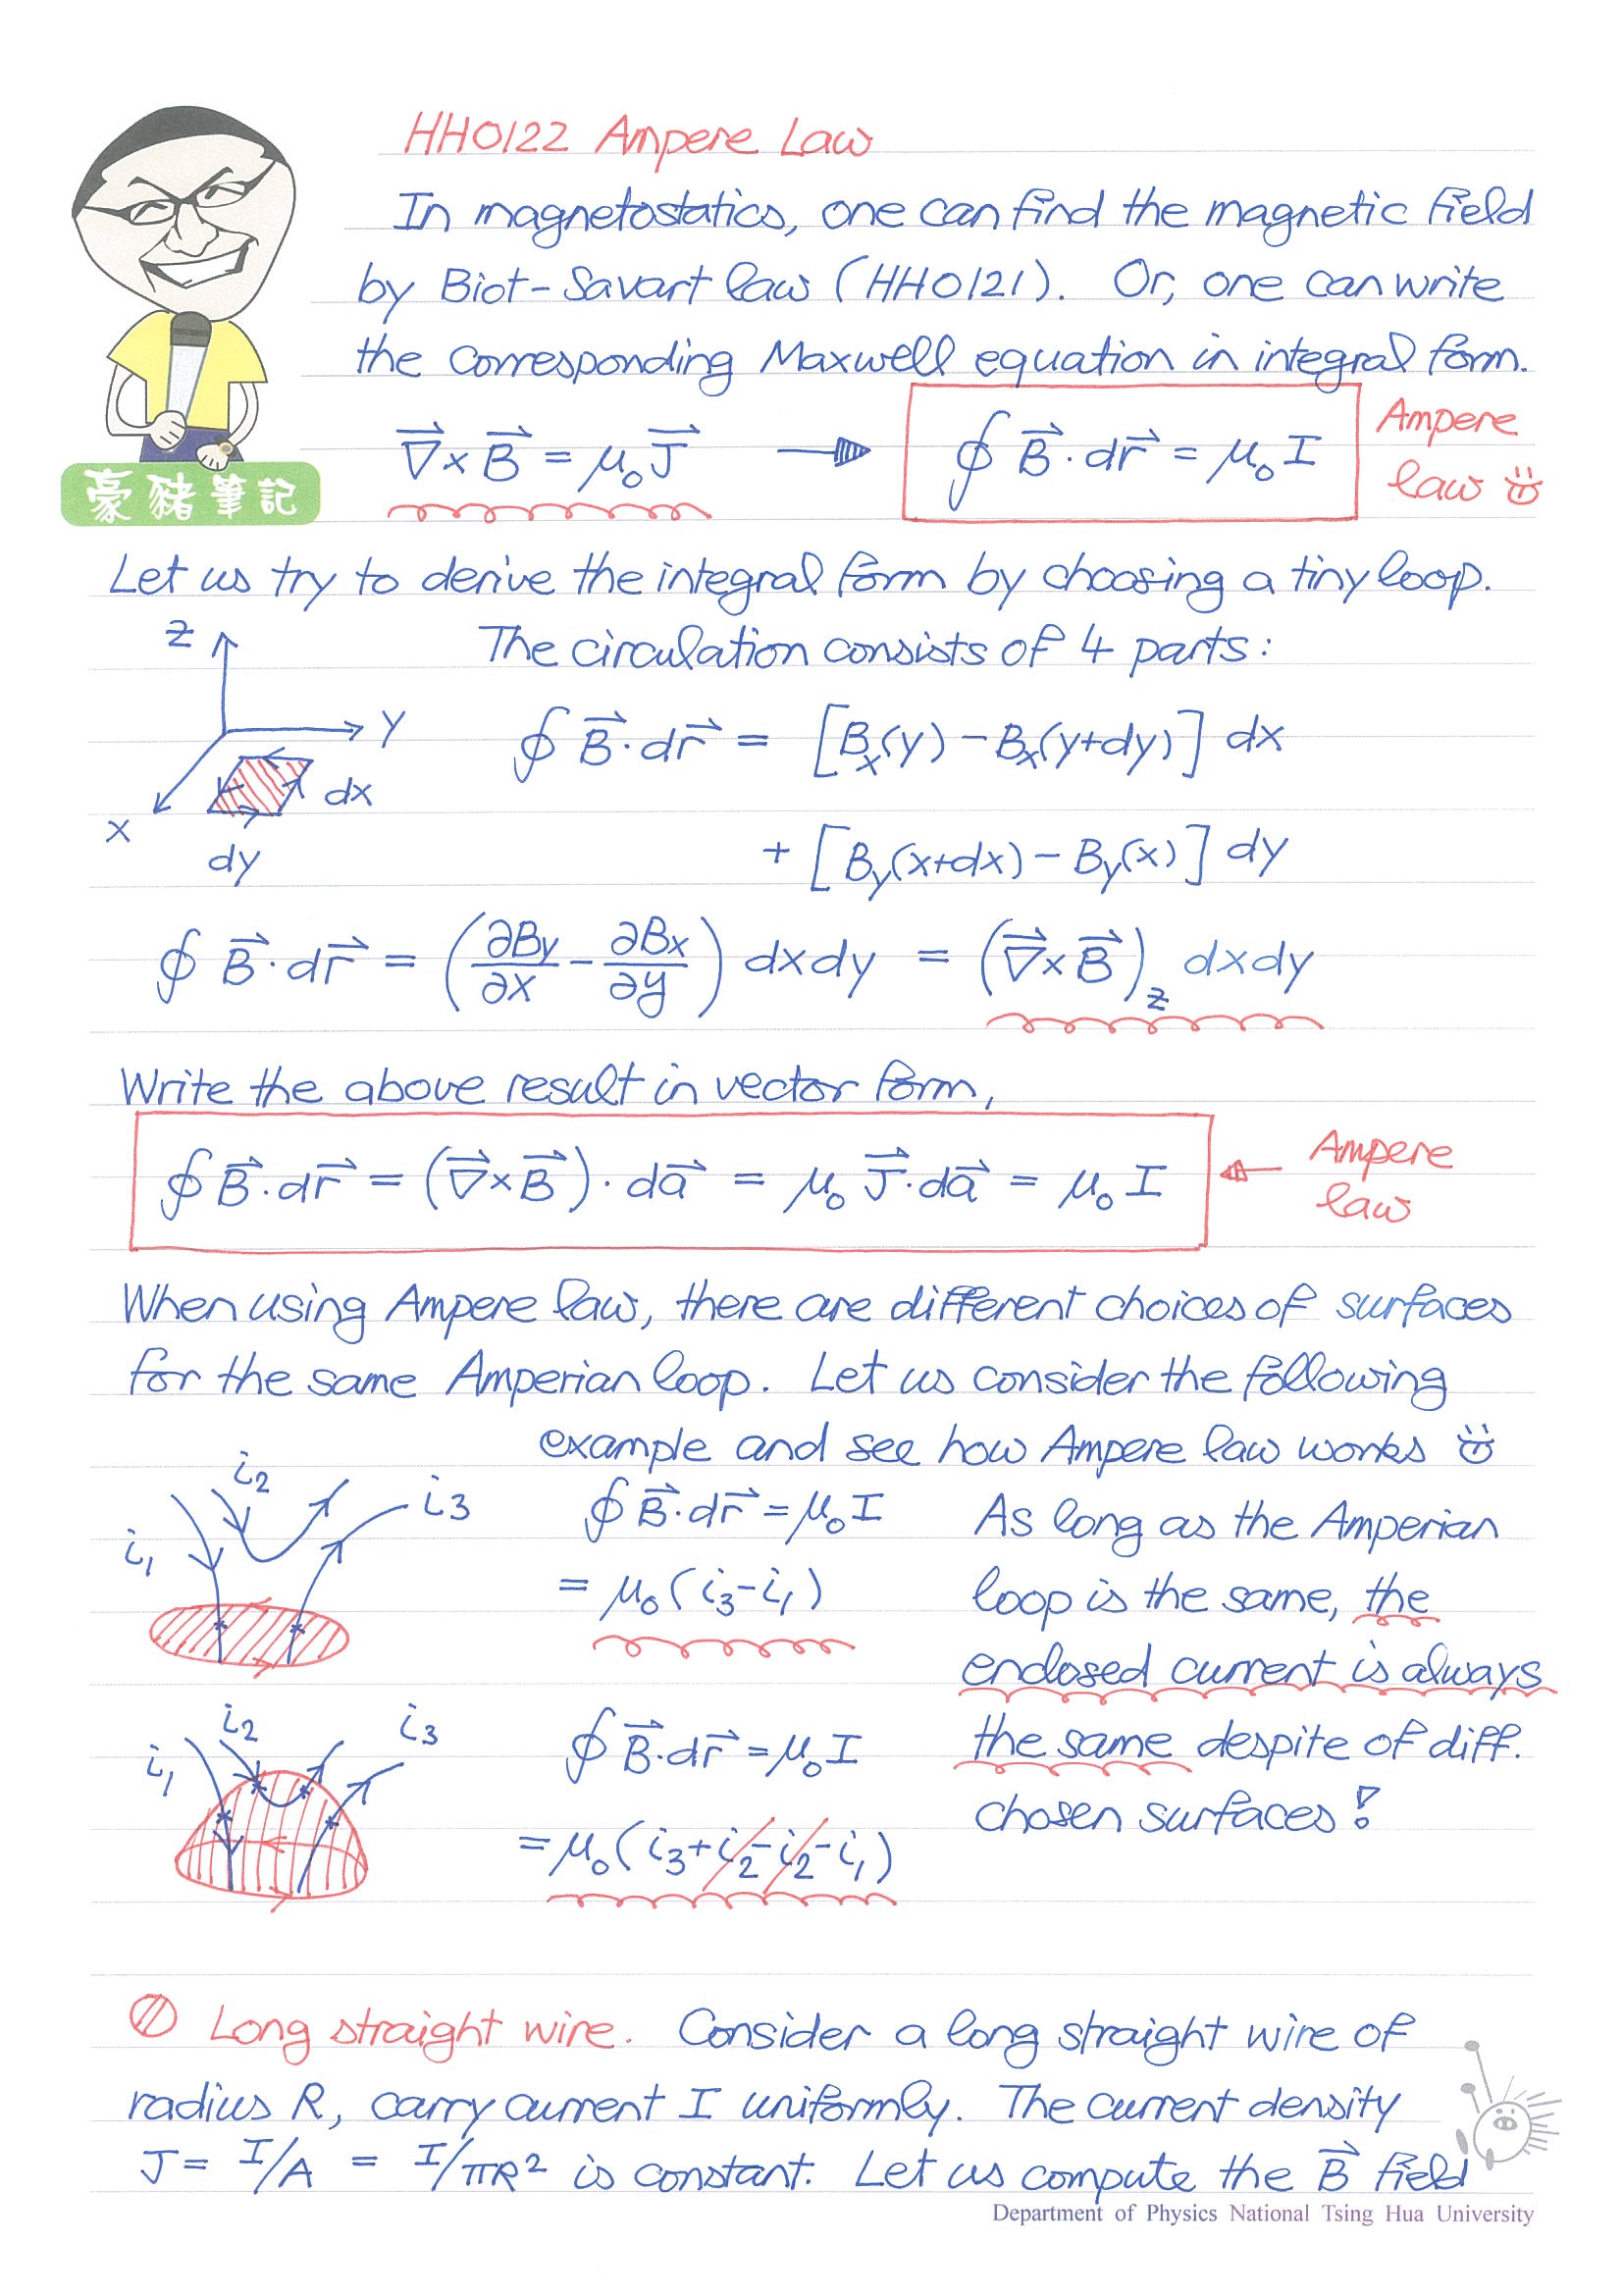 HH0122 Ampere Law
In magnetostatics, one can find the magnetic field
by Biot-Savart law (HH0121). Or, one can write
the corresponding Maxwell equation in integral form.
∇⃗×B⃗ = μ₀J⃗ → ∮ B⃗·dr⃗ = μ₀I Ampere law
豪豬筆記
Let us try to derive the integral form by choosing a tiny loop.
The circulation consists of 4 parts:
z
y
x
dx
dy
∮ B⃗·dr⃗ = [Bx(y) - Bx(y+dy)] dx
+ [By(x+dx) - By(x)] dy
∮ B⃗·dr⃗ = (∂By/∂x - ∂Bx/∂y) dxdy = (∇⃗×B⃗)z dxdy
Write the above result in vector form,
∮ B⃗·dr⃗ = (∇⃗×B⃗)·da⃗ = μ₀ J⃗·da⃗ = μ₀ I ← Ampere law
When using Ampere law, there are different choices of surfaces
for the same Amperian loop. Let us consider the following
example and see how Ampere law works
i₁ i₂ i₃
∮ B⃗·dr⃗ = μ₀I
= μ₀(i₃-i₁)
As long as the Amperian
loop is the same, the
enclosed current is always
the same despite of diff.
chosen surfaces!
i₁ i₂ i₃
∮ B⃗·dr⃗ = μ₀I
= μ₀(i₃+i₂-i₂-i₁)
Long straight wire. Consider a long straight wire of
radius R, carry current I uniformly. The current density
J = I/A = I/πR² is constant. Let us compute the B⃗ field
Department of Physics National Tsing Hua University